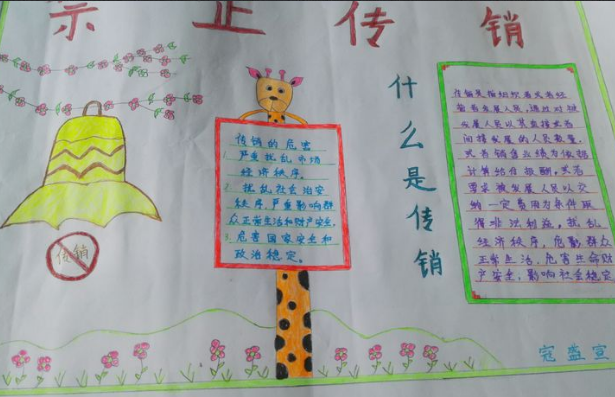 禁止传销
传销的危害
1. 严重扰乱市场
经济秩序。
2. 扰乱社会治安
秩序,严重影响群
众正常生活和财产安全。
3. 危害国家安全和
政治稳定。
传销
什么是传销
传销是指组织者或者经
营者发展人员,通过对被
发展人员以其直接或者
间接发展的人员数量,
或者销售业绩为依据
计算给付报酬,或者
要求被发展人员以交
纳一定费用为条件取
得非法利益,扰乱
经济秩序,危影群众
正常生活,危害生命财
产安全,影响社会稳定
寇盛宣